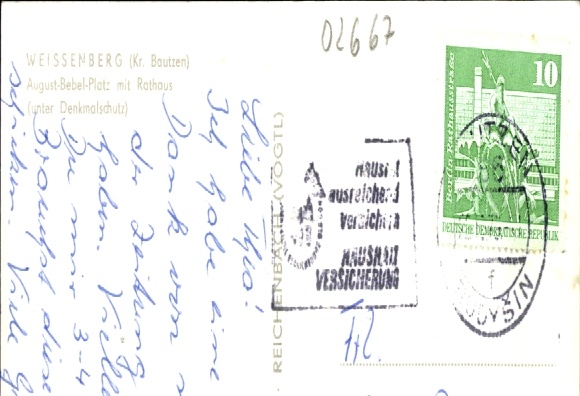 02667
WEISSENBERG (Kr. Bautzen)
August-Bebel-Platz mit Rathaus
(unter Denkmalschutz)
Liebe
Ich habe eine
Dank
der Zeitung
haben. Vielle
Du mir 3-4
Brauchst
schicken. Viele G
REICHENBACH (VOGTL)
HAUSRAT
ausreichend
versichern
HAUSHALT
VERSICHERUNG
Fr.
10
Berlin, Rathausstraße
DEUTSCHE DEMOKRATISCHE REPUBLIK
BAUTZEN
BUDYŠIN
f